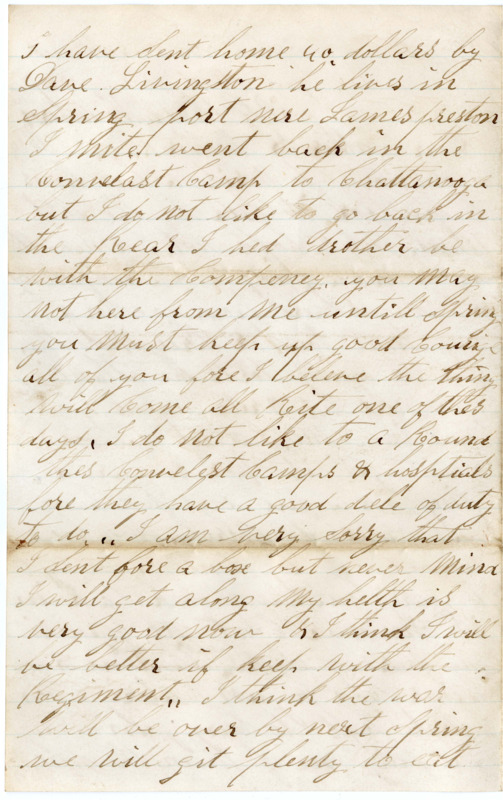 I have sent home 40 dollars by
Dave Livingston he lives in
Spring port nere James preston
I mite went back in the
Convelast Camp to Chattanooga
but I do not like to go back in
the Rear I hed brother be
with the Compeney. you may
not here from me untill Spring
you must keep up good Courig
all of you fore I beleve the thing
will Come all Rite one of thes
days, I do not like to a Round
thes Convelest Camps & hospitals
fore they have a good dele of duty
to do,, I am very sorry that
I sent fore a box but never mind
I will get along my helth is
very good now & I think I will
be better if keep with the
Regiment,, I think the war
will be over by next Spring
we will git plenty to eat